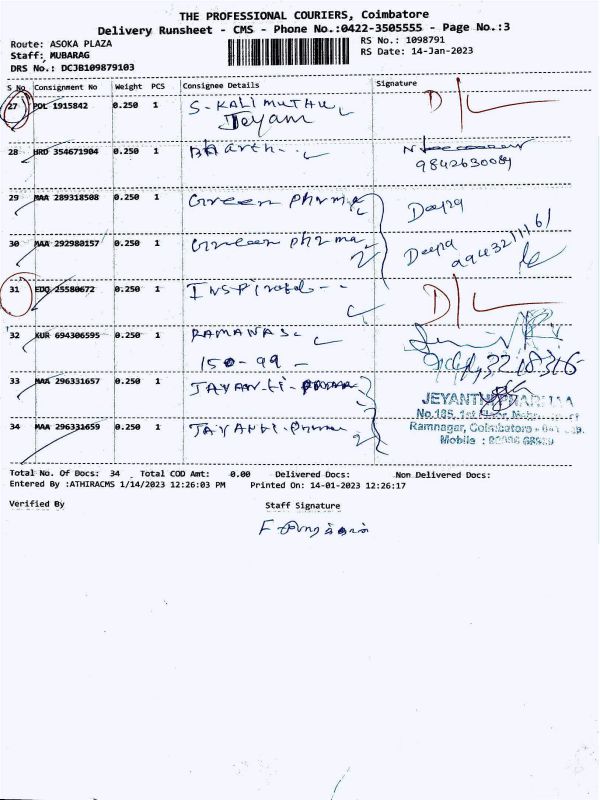 THE PROFESSIONAL COURIERS, Coimbatore
Delivery Runsheet - CMS - Phone No.:0422-3505555 - Page No.:3
Route: ASOKA PLAZA
Staff: MUBARAG
DRS No.: DCJB109879103
RS No.: 1098791
RS Date: 14-Jan-2023
S No Consignment No Weight PCS Consignee Details Signature
27 PDL 1915842 0.250 1 S-KALIMUTHU D/L
Jeyam
28 HRD 354671904 0.250 1 Bharth
9842630084
29 MAA 289318508 0.250 1 Green Pharma Deepa
30 MAA 292980157 0.250 1 Green pharma Deepa
31 EDQ 25580672 0.250 1 INSpirats-- D/L
32 KUR 694306595 0.250 1 RAMANAS
150-99-
33 MAA 296331657 0.250 1 JAYANti-Pharma
JEYANTHI PHARMAA
34 MAA 296331659 0.250 1 JAYANti-Pharma
Ramnagar, Coimbatore
Mobile :
Total No. Of Docs: 34 Total COD Amt: 0.00 Delivered Docs: Non Delivered Docs:
Entered By :ATHIRACMS 1/14/2023 12:26:03 PM Printed On: 14-01-2023 12:26:17
Verified By Staff Signature